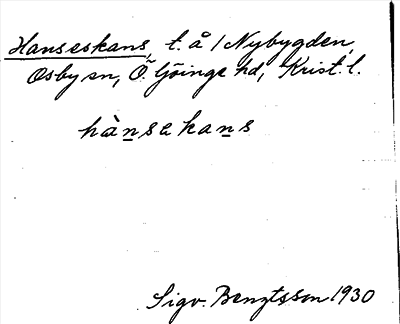 Hanseskans, t. å / Nybygden,
Osby sn, Ö. Göinge hd, Krist. l.
hànsəkans
Sigv. Bengtsson 1930